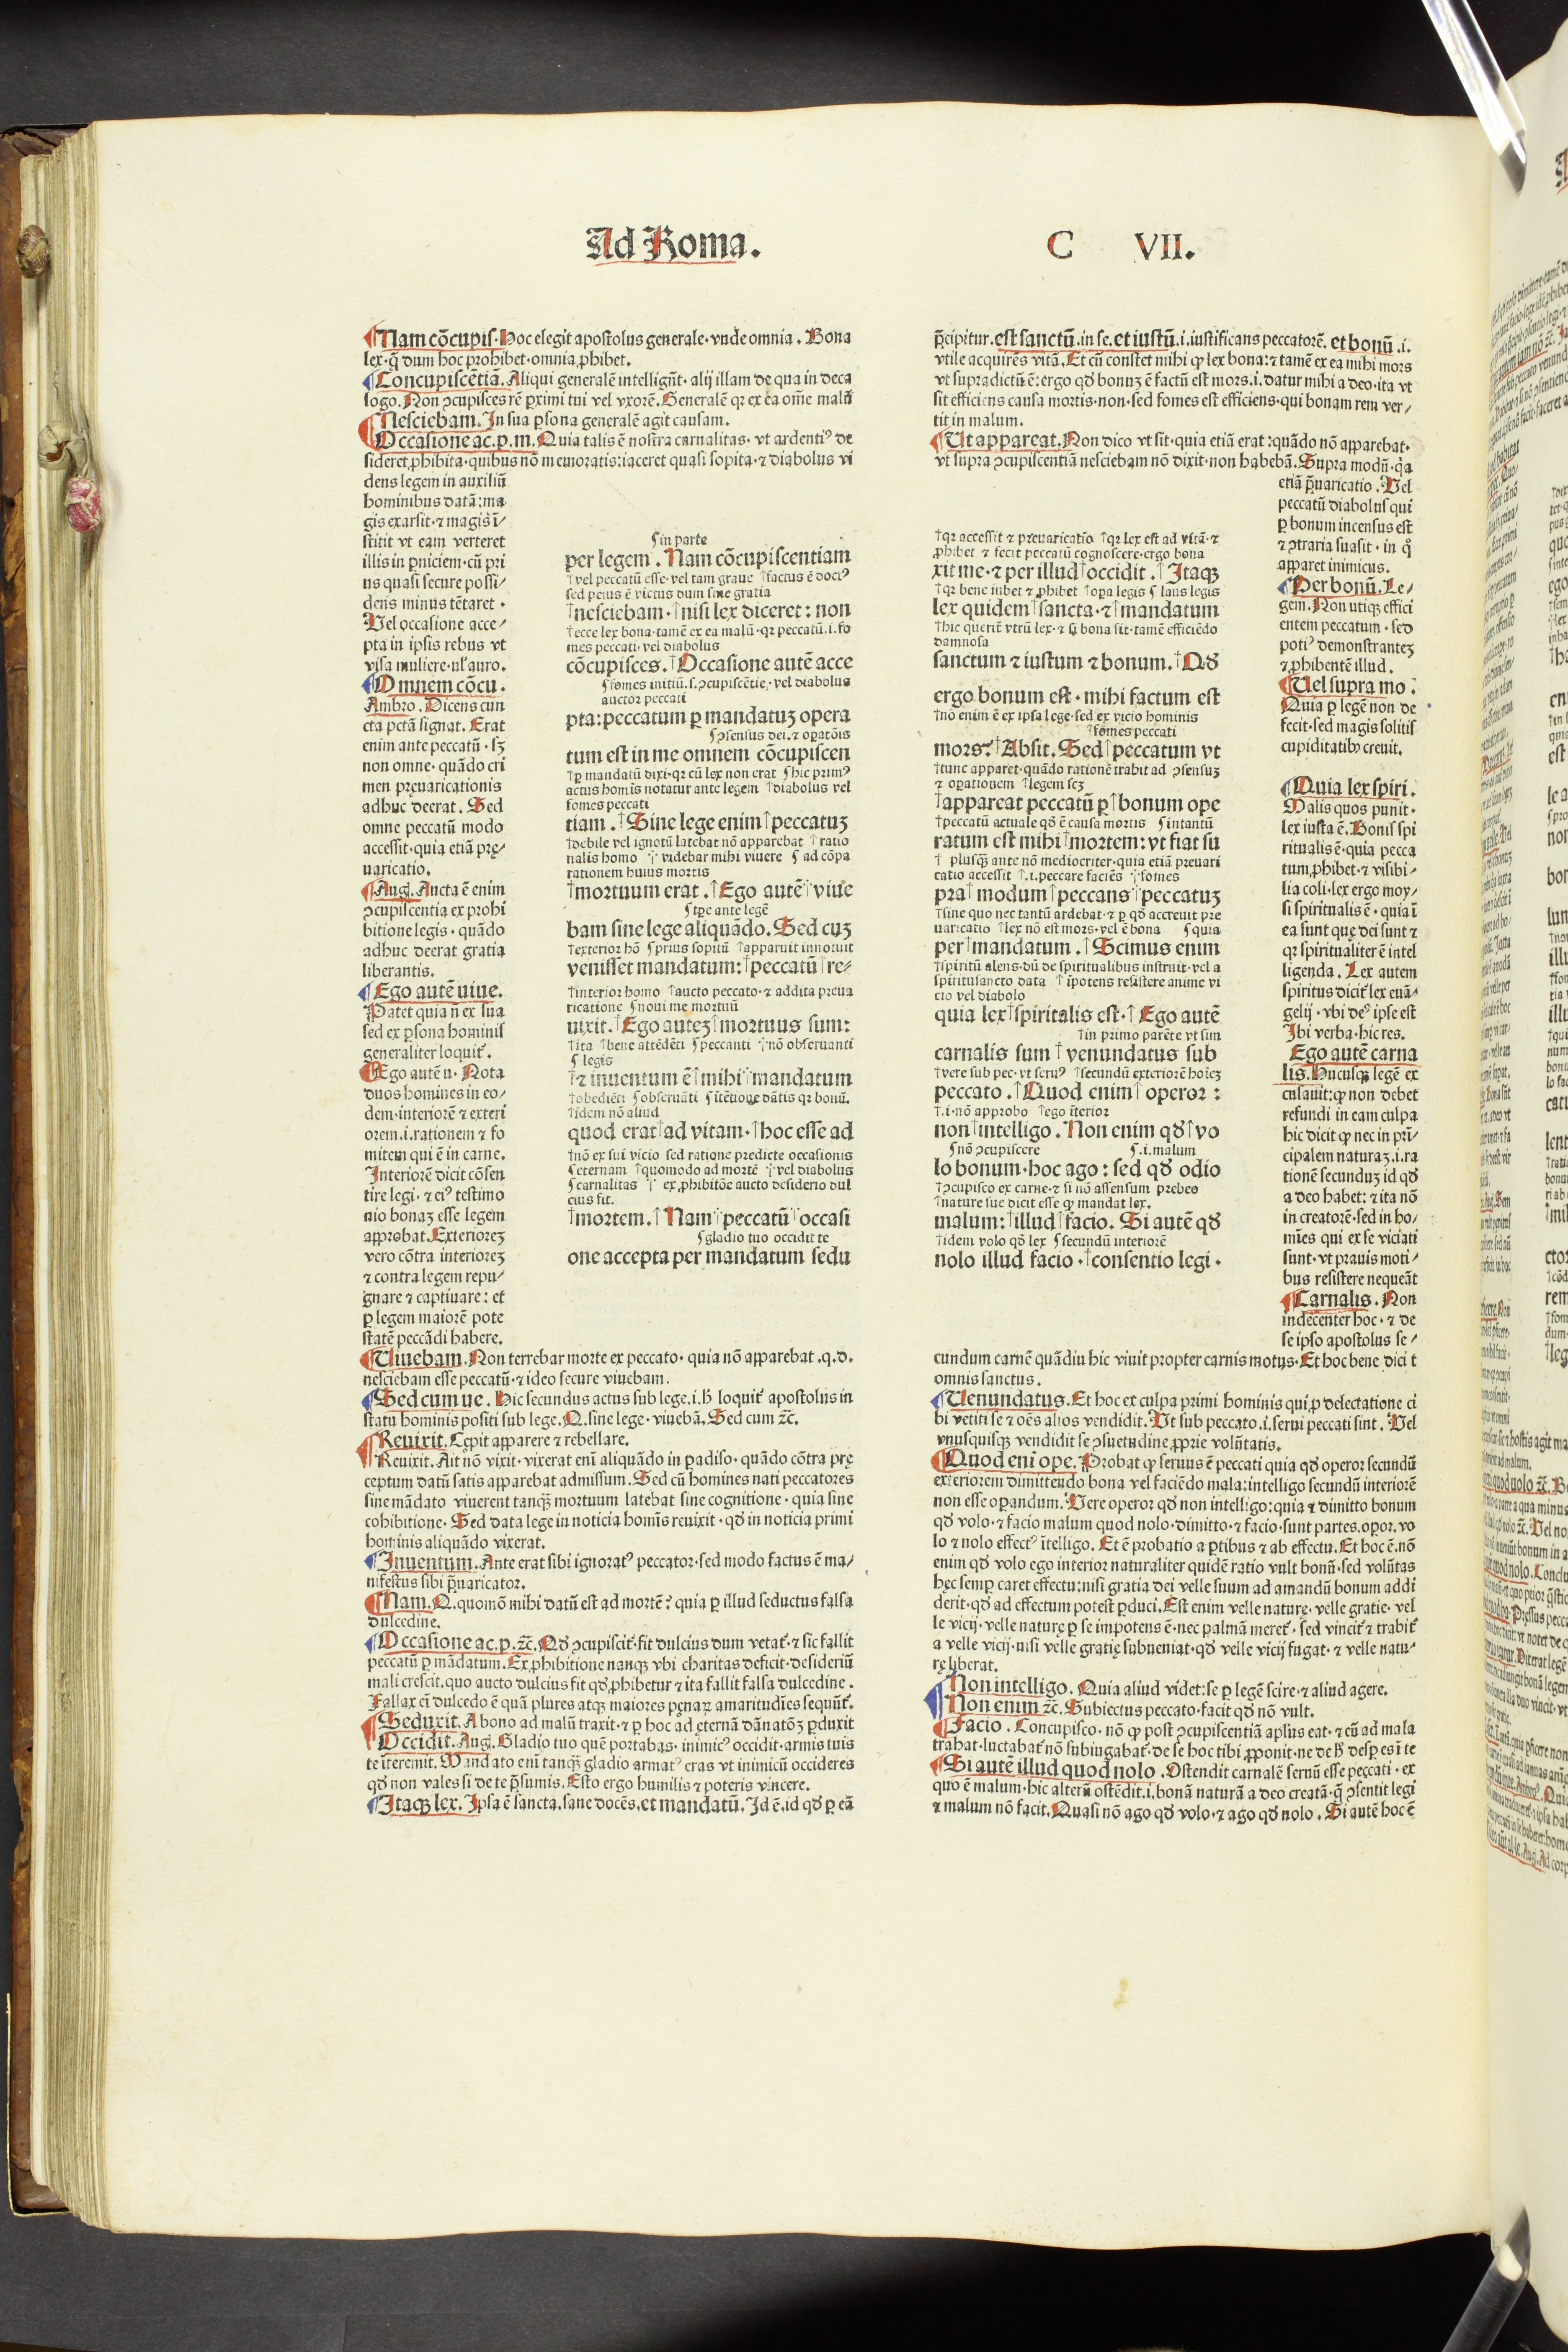 Ad Roma.
C VII.
¶Nam cōcupiſ. Hoc elegit apoſtolus generale· vnde omnia. Bona
lex·q̄ dum hoc prohibet·omnia ꝓhibet.
¶Concupiſcētiā. Aliqui generalē intelligūt· alij illam de qua in deca
logo. Non ꝯcupiſces rē ꝓximi tui vel vxorē. Generalē qꝛ ex ea om̄e malū
¶Neſciebam. In sua ꝑſona generalē agit cauſam.
Occaſione ac. p. m. Quia talis ē noſtra carnalitas· vt ardentiꝰ de
ſideret ꝓhibita·quibus nō memoratis:iaceret quaſi ſopita·⁊ diabolus vi
dens legem in auxiliū
hominibus datā:ma
gis exarſit·⁊ magis ī⸗
ſtitit vt eam verteret
illis in ꝑniciem·cū pri
us quaſi ſecure poſſi⸗
dens minus tētaret ·
Vel occaſione acce⸗
pta in ipſis rebus vt
viſa muliere·ul' auro.
¶Omnem cōcu.
Ambro. Dicens cun
cta pctā ſignat. Erat
enim ante peccatū · ſꝫ
non omne · quādo cri
men pręuaricationis
adhuc deerat. Sed
omne peccatū modo
acceſſit·quia etiā prę⸗
uaricatio.
¶Aug. Aucta ē enim
ꝯcupiſcentia ex prohi
bitione legis · quādo
adhuc deerat gratia
liberantis.
¶Ego autē uiue.
Patet quia n̄ ex ſua
ſed ex ꝑſona hominiſ
generaliter loquit̄.
¶Ego autē u. Nota
duos homines in eo⸗
dem·interiorē ⁊ exteri
orem.i.rationem ⁊ fo
mitem qui ē in carne.
Interiorē dicit cōſen
tire legi · ⁊ eiꝰ teſtimo
nio bonaꝫ eſſe legem
approbat. Exterioreꝫ
vero cōtra interioreꝫ
⁊ contra legem repu⸗
gnare ⁊ captiuare : et
ꝑ legem maiorē pote
ſtatē peccādi habere.
¶Viuebam. Non terrebar morte ex peccato· quia nō apparebat .q.d.
neſciebam eſſe peccatū·⁊ ideo ſecure viuebam.
¶Sed cum ue. Hic ſecundus actus ſub lege.i.h̄ loquit̄ apoſtolus in
ſtatu hominis poſiti ſub lege. Q. ſine lege· viuebā. Sed cum ⁊c̄.
¶Reuixit. Cępit apparere ⁊ rebellare.
Reuixit. Ait nō vixit·vixerat eni aliquādo in ꝑadiſo· quādo cōtra prę
ceptum datū ſatis apparebat admiſſum. Sed cū homines nati peccatores
ſine mādato viuerent tanqꝫ mortuum latebat ſine cognitione · quia ſine
cohibitione· Sed data lege in noticia homīs reuixit · qd̄ in noticia primi
hominis aliquādo vixerat.
¶Inuentum. Ante erat ſibi ignoratꝰ peccator·ſed modo factus ē ma⸗
nifeſtus ſibi p̄uaricator.
¶Nam. Q. quomō mihi datū eſt ad mortē? quia ꝑ illud ſeductus falſa
dulcedine.
¶Occaſione ac. p. ⁊c̄. Qd̄ ꝯcupiſcit̄·fit dulcius dum vetat̄· ⁊ ſic fallit
peccatū ꝑ mādatum. Ex ꝓhibitione nanqꝫ vbi charitas deficit·deſideriū
mali creſcit.quo aucto dulcius fit qd̄ ꝓhibetur ⁊ ita fallit falſa dulcedine .
Fallax eī dulcedo ē quā plures atqꝫ maiores pęnaꝝ amaritudīes ſequūt̄.
¶Seduxit. A bono ad malū traxit·⁊ ꝑ hoc ad ęternā dānatōꝫ ꝑduxit
Occidit. Aug. Gladio tuo quē portabas· inimicꝰ occidit·armis tuis
te īteremit. Mandato eni tanqꝫ gladio armatꝰ eras vt inimicū occideres
qd̄ non vales ſi de te p̄ſumis. Eſto ergo humilis ⁊ poteris vincere.
¶Itaqꝫ lex. Ipſa ē ſancta.ſane docēs.et mandatū. Id ē.id qd̄ ꝑ eā
ſin parte
per legem . Nam cōcupiſcentiam
†vel peccatū eſſe·vel tam graue †factus ē doctꝰ
ſed peius ē victus dum ſine gratia
†neſciebam·†niſi lex diceret : non
†ecce lex bona·tamē ex ea malū·qꝛ peccatū.i.fo
mes peccati·vel diabolus
cōcupiſces.†Occaſione autē acce
ſfomes initiū.ſ.ꝯcupiſcētie·vel diabolus
auctor peccati
pta:peccatum ꝑ mandatuꝫ opera
ſꝯſenſus dei.⁊ oꝑatōis
tum eſt in me omnem cōcupiſcen
†ꝑ mandatū dixi·qꝛ cū lex non erat ſhic primꝰ
actus homīs notatur ante legem †diabolus vel
fomes peccati
tiam.†Sine lege enim†peccatuꝫ
†debile vel ignotū latebat nō apparebat † ratio
nalis homo † videbar mihi viuere ſ ad cōpa
rationem huius mortis
†mortuum erat .†Ego autē†viue
ſtp̄e ante legē
bam ſine lege aliquādo. Sed cuꝫ
†exterior hō ſprius ſopitū †apparuit innotuit
veniſſet mandatum:†peccatū†re⸗
†interior homo †aucto peccato·⁊ addita preua
ricatione ſnoui me mortuū
uixit.†Ego auteꝫ†mortuus ſum:
†ita †bene attēdēti ſpeccanti †nō obſeruanti
ſ legis
†⁊ inuentum ē†mihi†mandatum
†obediēti ſobſeruāti ſītētione dātis qꝛ bonū.
†idem nō aliud
quod erat†ad vitam·†hoc eſſe ad
†nō ex ſui vicio ſed ratione predicte occaſionis
ſeternam †quomodo ad mortē †vel diabolus
ſcarnalitas † ex ꝓhibitōe aucto deſiderio dul
cius fit.
†mortem.†Nam†peccatū†occaſi
ſgladio tuo occidit te
one accepta per mandatum ſedu
p̄cipitur.eſt ſanctū.in ſe.et iuſtū.i.iuſtificans peccatorē. et bonū .i.
vtile acquirēs vitā. Et cū conſtet mihi qꝙ lex bona:⁊ tamē ex ea mihi mors
vt ſupradictū ē:ergo qd̄ bonuꝫ ē factū eſt mors.i.datur mihi a deo·ita vt
ſit efficiens cauſa mortis·non·ſed fomes eſt efficiens·qui bonam rem ver⸗
tit in malum.
¶Ut appareat. Non dico vt ſit·quia etiā erat:quādo nō apparebat·
vt ſupra ꝯcupiſcentiā neſciebam nō dixit·non habebā. Supra modū·q̇a
etiā p̄uaricatio. Vel
peccatū diaboluſ qui
ꝑ bonum incenſus eſt
⁊ ꝯtraria ſuaſit · in q̊
apparet inimicus.
¶Per bonū. Le⸗
gem. Non utiqꝫ effici
entem peccatum · ſed
potiꝰ demonſtranteꝫ
⁊ ꝓhibentē illud.
¶Vel ſupra mo.
Quia ꝑ legē non de
fecit·ſed magis ſolitiſ
cupiditatibꝰ creuit.
¶Quia lex ſpiri.
Malis quos punit·
lex iuſta ē. Boniſ ſpi
ritualis ē·quia pecca
tum ꝓhibet·⁊ viſibi⸗
lia coli·lex ergo moy⸗
ſi ſpiritualis ē · quia ī
ea ſunt quę dei ſunt ⁊
qꝛ ſpiritualiter ē intel
ligenda. Lex autem
ſpiritus dicit̄ lex euā⸗
gelij · vbi deꝰ ipſe eſt
Ibi verba·hic res.
Ego autē carna
lis. Hucuſqꝫ legē ex
cuſauit:ꝙ non debet
refundi in eam culpa
hic dicit ꝙ nec in prī⸗
cipalem naturaꝫ.i.ra
tionē ſecunduꝫ id qd̄
a deo habet: ⁊ ita nō
in creatorē·ſed in ho⸗
mīes qui ex ſe viciati
ſunt·vt prauis moti⸗
bus reſiſtere nequeāt
¶Carnalis. Non
indecenter hoc·⁊ de
ſe ipſo apoſtolus ſe⸗
cundum carnē quādiu hic viuit propter carnis motus·Et hoc bene dici t
omnis ſanctus.
¶Venundatus. Et hoc ex culpa primi hominis qui ꝓ delectatione ci
bi vetiti ſe ⁊ oēs alios vendidit. Vt ſub peccato.i.ſerui peccati ſint. Vel
vnuſquiſqꝫ vendidit ſe ꝯſuetudine ꝓprie volūtatis.
¶Quod eni ope. Probat ꝙ ſeruus ē peccati quia qd̄ operor ſecundū
exteriorem dimittendo bona vel faciēdo mala:intelligo ſecundū interiorē
non eſſe oꝑandum. Vere operor qd̄ non intelligo:quia ⁊ dimitto bonum
qd̄ volo·⁊ facio malum quod nolo·dimitto·⁊ facio·ſunt partes.oꝑor.vo
lo ⁊ nolo effectꝰ ītelligo. Et ē probatio a ꝑtibus ⁊ ab effectu. Et hoc ē.nō
enim qd̄ volo ego interior naturaliter quidē ratio vult bonū·ſed volūtas
hęc ſemꝑ caret effectu:niſi gratia dei velle ſuum ad amandū bonum addi
derit·qd̄ ad effectum poteſt ꝑduci. Eſt enim velle naturę· velle gratie· vel
le vicij·velle naturę ꝑ ſe impotens ē·nec palmā meret̄ · ſed vincit̄ ⁊ trahit̄
a velle vicij·niſi velle gratię ſubueniat·qd̄ velle vicij fugat· ⁊ velle natu⸗
rę liberat.
¶Non intelligo. Quia aliud videt:ſe ꝑ legē ſcire·⁊ aliud agere.
Non enim ⁊c̄. Subiectus peccato·facit qd̄ nō vult.
¶Facio. Concupiſco· nō ꝙ poſt ꝯcupiſcentiā apl̄us eat·⁊ cū ad mala
trahat·luctabat̄ nō ſubiugabat̄·de ſe hoc tibi ꝓponit·ne de h̄ deſꝑes ī te
¶Si autē illud quod nolo. Oſtendit carnalē ſeruū eſſe peccati · ex
quo ē malum·hic alterū oſtēdit.i.bonā naturā a deo creatā·q̄ ꝯſentit legi
⁊ malum nō facit. Quaſi nō ago qd̄ volo·⁊ ago qd̄ nolo. Si autē hoc ē
†qꝛ acceſſit ⁊ preuaricatio †qꝛ lex eſt ad vitā·⁊
ꝓhibet ⁊ fecit peccatū cognoſcere·ergo bona
xit me·⁊ per illud†occidit.†Itaqꝫ
†qꝛ bene iubet ⁊ ꝓhibet †oꝑa legis ſ laus legis
lex quidem†ſancta·⁊†mandatum
†hic querit̄ vtrū lex·⁊ ſi bona ſit·tamē efficiēdo
damnoſa
ſanctum ⁊ iuſtum ⁊ bonum.†Qd̄
ergo bonum eſt·mihi factum eſt
†nō enim ē ex ipſa lege·ſed ex vicio hominis
†fomes peccati
mors?†Abſit. Sed†peccatum vt
†tunc apparet·quādo rationē trahit ad ꝯſenſuꝫ
⁊ oꝑationem †legem ſcꝫ
†appareat peccatū ꝑ†bonum ope
†peccatū actuale qd̄ ē cauſa mortis ſintantū
ratum eſt mihi†mortem:vt fiat ſu
† pluſqꝫ ante nō mediocriter·quia etiā preuari
catio acceſſit †.i.peccare faciēs †fomes
pra†modum†peccans†peccatuꝫ
†ſine quo nec tantū ardebat·⁊ ꝑ qd̄ accreuit pre
uaricatio †lex nō eſt mors·vel ē bona ſquia
per†mandatum.†Scimus enim
†ſpiritū alens·dū de ſpiritualibus inſtruit·vel a
ſpirituſancto data †ipotens reſiſtere anime vi
cio vel diabolo
quia lex†ſpiritalis eſt·†Ego autē
†in primo parēte vt ſim
carnalis ſum†venundatus ſub
†vere ſub pec·vt ſeruꝰ †ſecundū exteriorē hoīeꝫ
peccato.†Quod enim†operor :
†.i·nō approbo †ego īterior
non†intelligo. Non enim qd̄†vo
ſnō ꝯcupiſcere ſ.i.malum
lo bonum·hoc ago : ſed qd̄ odio
†ꝯcupiſco ex carne·⁊ ſi nō aſſenſum prebeo
†nature ſue dicit eſſe ꝙ mandat lex.
malum:†illud†facio. Si autē qd̄
†idem volo qd̄ lex ſſecundū interiorē
nolo illud facio·†conſentio legi·